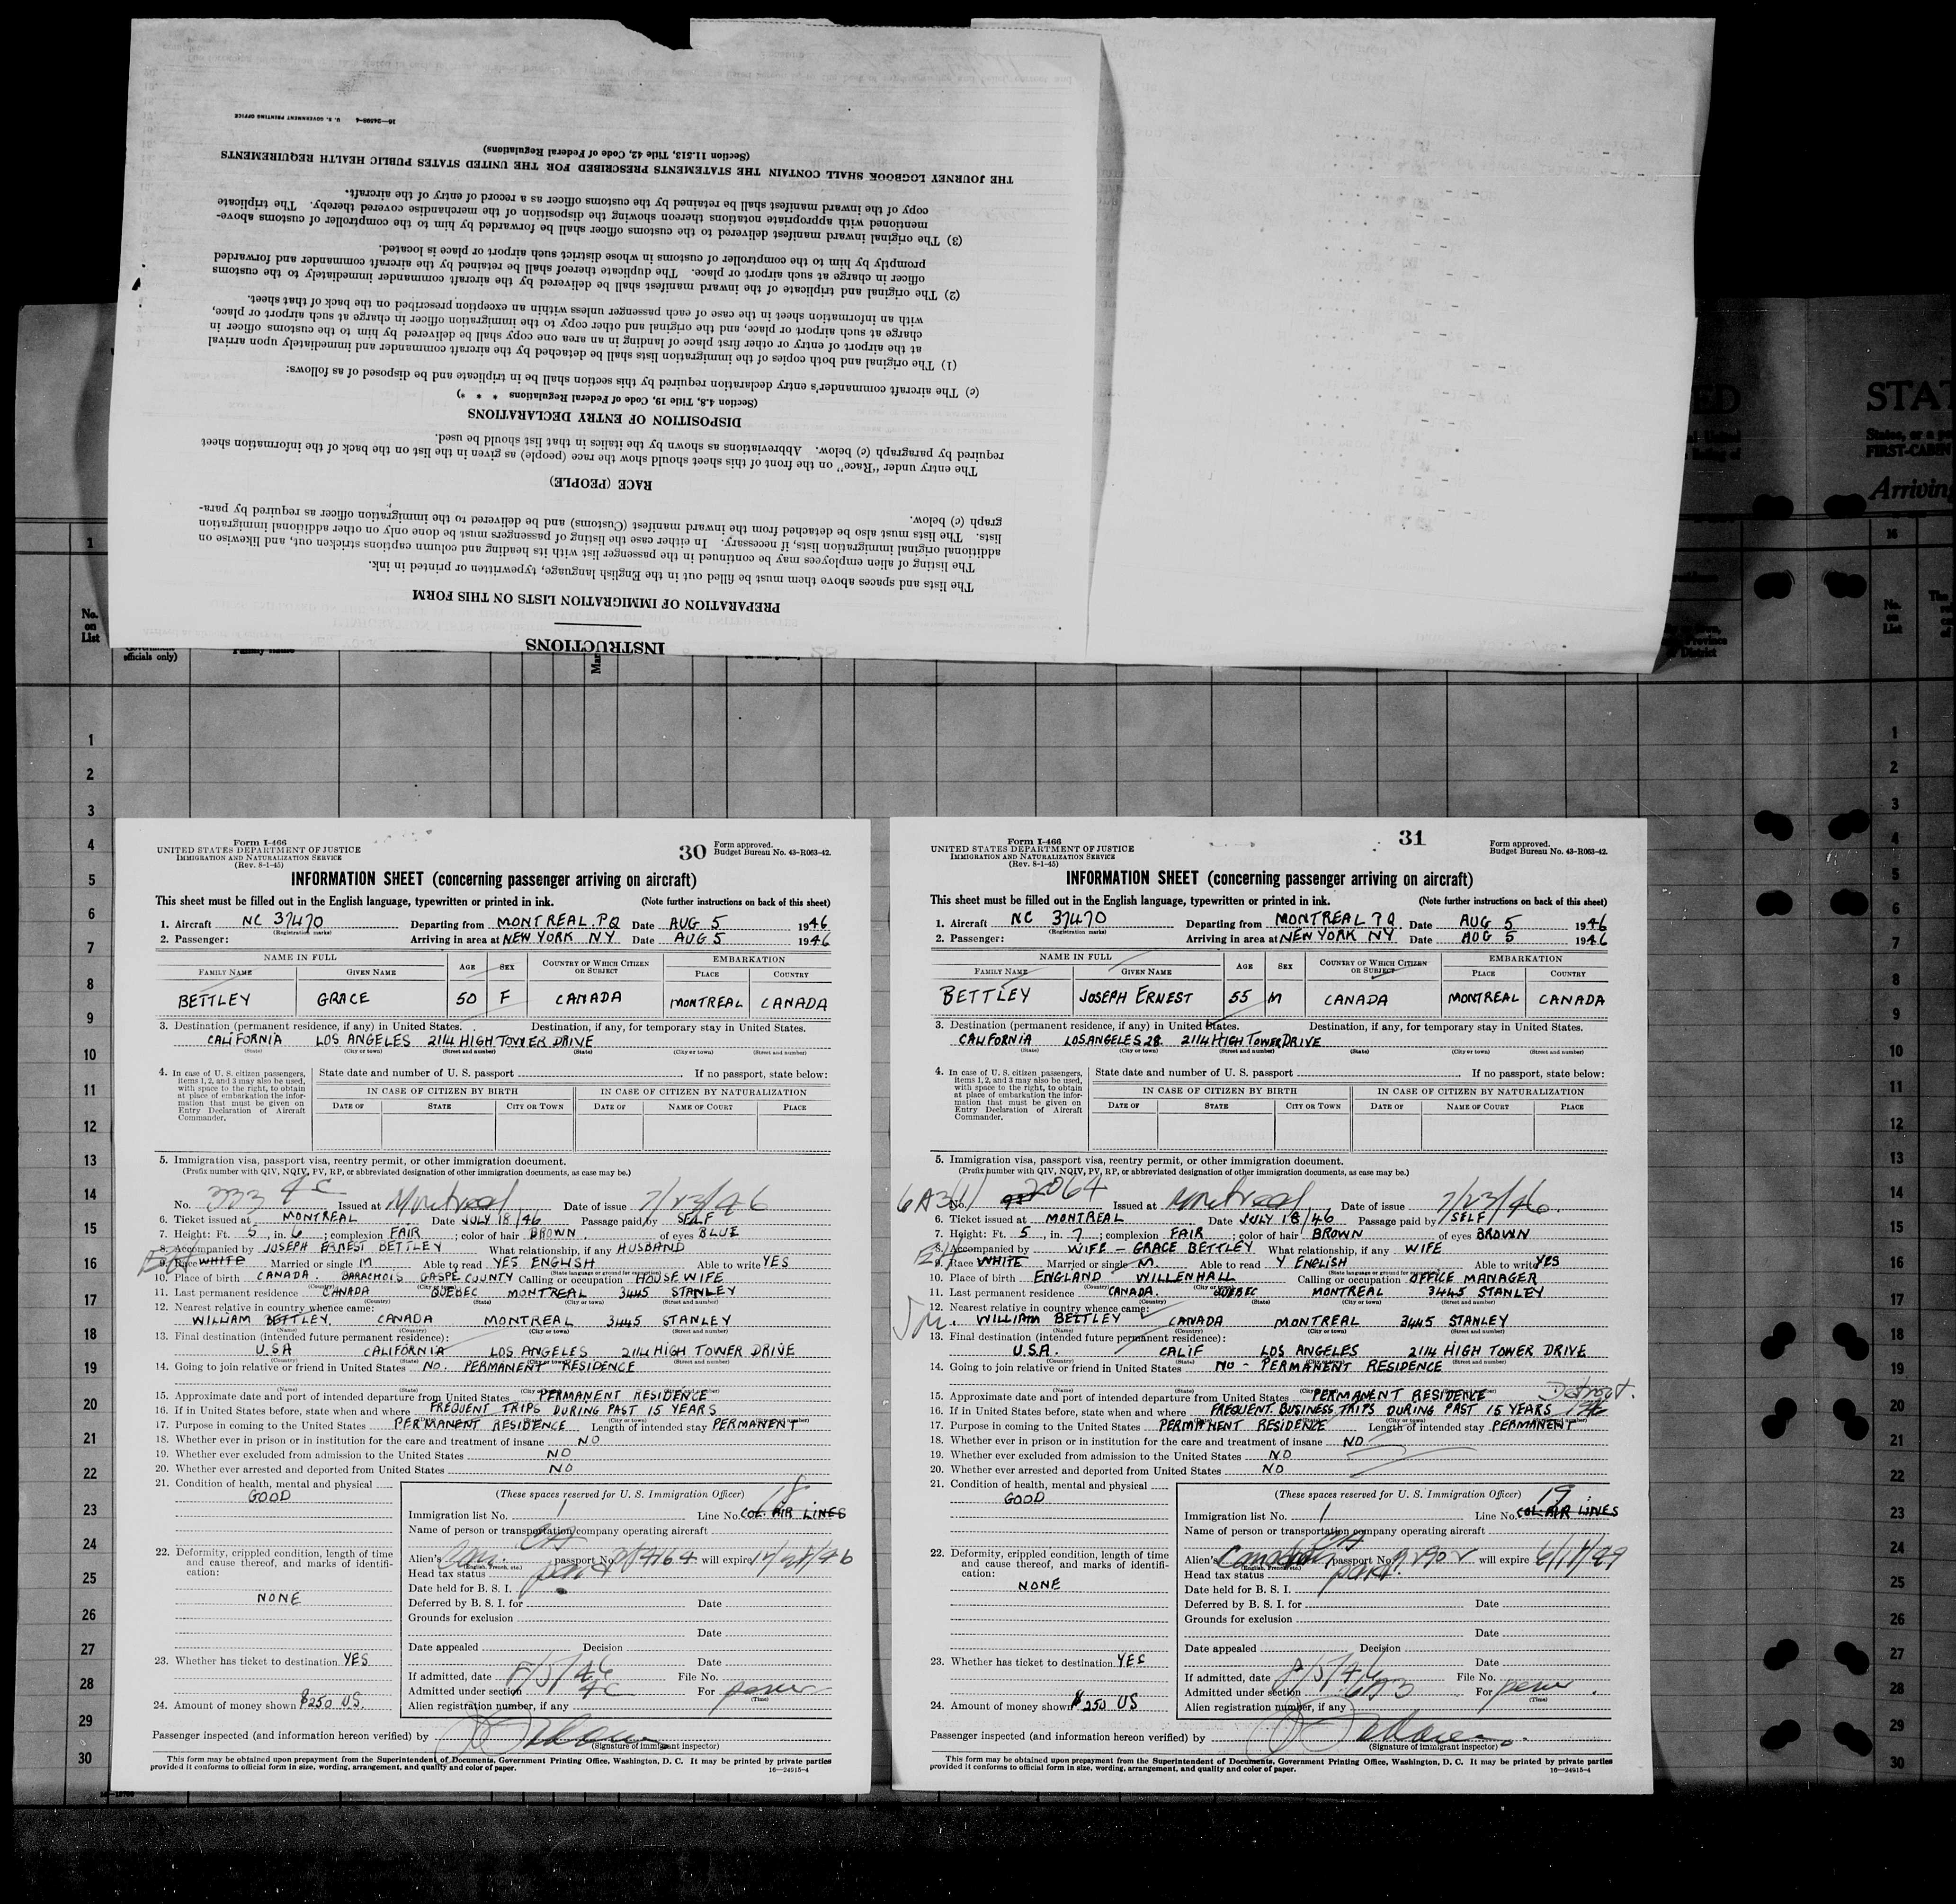 INSTRUCTIONS
PREPARATION OF IMMIGRATION LISTS ON THIS FORM
The lists and spaces above them must be filled out in the English language, typewritten or printed in ink.
The listing of alien employees may be continued in the passenger list with its heading and column captions stricken out, and likewise on
additional original immigration lists, if necessary. In either case the listing of passengers must be done only on other additional immigration
lists. The lists must also be detached from the inward manifest (Customs) and be delivered to the immigration officer as required by para-
graph (c) below.
RACE (PEOPLE)
The entry under "Race" on the front of this sheet should show the race (people) as given in the list on the back of the information sheet
required by paragraph (c) below. Abbreviations as shown by the italics in that list should be used.
DISPOSITION OF ENTRY DECLARATIONS
(Section 4.8, Title 19, Code of Federal Regulations * * *)
(c) The aircraft commander's entry declaration required by this section shall be in triplicate and be disposed of as follows:
(1) The original and both copies of the immigration lists shall be detached by the aircraft commander and immediately upon arrival
at the airport of entry or other first place of landing in an area one copy shall be delivered by him to the customs officer in
charge at such airport or place, and the original and other copy to the immigration officer in charge at such airport or place,
with an information sheet in the case of each passenger unless within an exception prescribed on the back of that sheet.
(2) The original and triplicate of the inward manifest shall be delivered by the aircraft commander immediately to the customs
officer in charge at such airport or place. The duplicate thereof shall be retained by the aircraft commander and forwarded
promptly by him to the comptroller of customs in whose district such airport or place is located.
(3) The original inward manifest delivered to the customs officer shall be forwarded by him to the comptroller of customs above-
mentioned with appropriate notations thereon showing the disposition of the merchandise covered thereby. The triplicate
copy of the inward manifest shall be retained by the customs officer as a record of entry of the aircraft.
THE JOURNEY LOGBOOK SHALL CONTAIN THE STATEMENTS PRESCRIBED FOR THE UNITED STATES PUBLIC HEALTH REQUIREMENTS
(Section 11.513, Title 42, Code of Federal Regulations)
16—24598-4 U. S. GOVERNMENT PRINTING OFFICE
ED
STAT
FIRST-CABIN
Arriving
1
16
No. on List
officials only)
Family name
No. on List
Form I-466
UNITED STATES DEPARTMENT OF JUSTICE
IMMIGRATION AND NATURALIZATION SERVICE
(Rev. 8-1-45)
30
Form approved.
Budget Bureau No. 43-R063-42.
INFORMATION SHEET (concerning passenger arriving on aircraft)
This sheet must be filled out in the English language, typewritten or printed in ink. (Note further instructions on back of this sheet)
1. Aircraft NC 37470 Departing from MONTREAL. P.Q Date AUG 5 1946
(Registration marks)
2. Passenger: Arriving in area at NEW YORK NY Date AUG 5 1946
NAME IN FULL AGE SEX COUNTRY OF WHICH CITIZEN OR SUBJECT EMBARKATION
FAMILY NAME GIVEN NAME PLACE COUNTRY
BETTLEY GRACE 50 F CANADA MONTREAL CANADA
3. Destination (permanent residence, if any) in United States. Destination, if any, for temporary stay in United States.
CALIFORNIA LOS ANGELES 2114 HIGH TOWER DRIVE
(State) (City or town) (Street and number) (State) (City or town) (Street and number)
4. In case of U. S. citizen passengers, items 1, 2, and 3 may also be used, with space to the right, to obtain at place of embarkation the information that must be given on Entry Declaration of Aircraft Commander.
State date and number of U. S. passport If no passport, state below:
IN CASE OF CITIZEN BY BIRTH IN CASE OF CITIZEN BY NATURALIZATION
DATE OF STATE CITY OR TOWN DATE OF NAME OF COURT PLACE
5. Immigration visa, passport visa, reentry permit, or other immigration document.
(Prefix number with QIV, NQIV, PV, RP, or abbreviated designation of other immigration documents, as case may be.)
No. 333 4C Issued at Montreal Date of issue 7/23/46
6. Ticket issued at MONTREAL Date JULY 18/46 Passage paid by SELF
7. Height: Ft. 5, in. 6; complexion FAIR; color of hair BROWN. of eyes BLUE
8. Accompanied by JOSEPH ERNEST BETTLEY What relationship, if any HUSBAND
9. Race WHITE Married or single M Able to read YES ENGLISH Able to write YES
10. Place of birth CANADA. BARACHOIS GASPE COUNTY Calling or occupation HOUSE WIFE
11. Last permanent residence CANADA QUEBEC MONTREAL 3445 STANLEY
(Country) (State) (City or town) (Street and number)
12. Nearest relative in country whence came:
WILLIAM BETTLEY, CANADA MONTREAL 3445 STANLEY
(Name) (Country) (City or town) (Street and number)
13. Final destination (intended future permanent residence):
U.S.A CALIFORNIA LOS ANGELES 2114 HIGH TOWER DRIVE
(Country) (State) (City or town) (Street and number)
14. Going to join relative or friend in United States NO. PERMANENT RESIDENCE
(Name) (State) (City or town) (Street and number)
15. Approximate date and port of intended departure from United States PERMANENT RESIDENCE
16. If in United States before, state when and where FREQUENT TRIPS DURING PAST 15 YEARS
17. Purpose in coming to the United States PERMANENT RESIDENCE Length of intended stay PERMANENT
18. Whether ever in prison or in institution for the care and treatment of insane NO
19. Whether ever excluded from admission to the United States NO
20. Whether ever arrested and deported from United States NO
21. Condition of health, mental and physical
GOOD
22. Deformity, crippled condition, length of time and cause thereof, and marks of identification:
NONE
23. Whether has ticket to destination YES
24. Amount of money shown $250 US.
(These spaces reserved for U. S. Immigration Officer)
Immigration list No. 1 Line No. 18 COL. AIR LINES
Name of person or transportation company operating aircraft
Alien's Can. passport No. will expire
(English, French, etc.)
Head tax status paid
Date held for B. S. I.
Deferred by B. S. I. for Date
Grounds for exclusion
Date
Date appealed Decision
Date
If admitted, date 8/5/46 File No.
Admitted under section 4C For perm
(Time)
Alien registration number, if any
Passenger inspected (and information hereon verified) by
(Signature of immigrant inspector)
This form may be obtained upon prepayment from the Superintendent of Documents, Government Printing Office, Washington, D. C. It may be printed by private parties
provided it conforms to official form in size, wording, arrangement, and quality and color of paper. 16—24915-4
Form I-466
UNITED STATES DEPARTMENT OF JUSTICE
IMMIGRATION AND NATURALIZATION SERVICE
(Rev. 8-1-45)
31
Form approved.
Budget Bureau No. 43-R063-42.
INFORMATION SHEET (concerning passenger arriving on aircraft)
This sheet must be filled out in the English language, typewritten or printed in ink. (Note further instructions on back of this sheet)
1. Aircraft NC 37470 Departing from MONTREAL P.Q. Date AUG 5 1946
(Registration marks)
2. Passenger: Arriving in area at NEW YORK NY Date AUG 5 1946
NAME IN FULL AGE SEX COUNTRY OF WHICH CITIZEN OR SUBJECT EMBARKATION
FAMILY NAME GIVEN NAME PLACE COUNTRY
BETTLEY JOSEPH ERNEST 55 M CANADA MONTREAL CANADA
3. Destination (permanent residence, if any) in United States. Destination, if any, for temporary stay in United States.
CALIFORNIA LOS ANGELES 28. 2114 HIGH TOWER DRIVE
(State) (City or town) (Street and number) (State) (City or town) (Street and number)
4. In case of U. S. citizen passengers, items 1, 2, and 3 may also be used, with space to the right, to obtain at place of embarkation the information that must be given on Entry Declaration of Aircraft Commander.
State date and number of U. S. passport If no passport, state below:
IN CASE OF CITIZEN BY BIRTH IN CASE OF CITIZEN BY NATURALIZATION
DATE OF STATE CITY OR TOWN DATE OF NAME OF COURT PLACE
5. Immigration visa, passport visa, reentry permit, or other immigration document.
(Prefix number with QIV, NQIV, PV, RP, or abbreviated designation of other immigration documents, as case may be.)
6A3(1) No. 2064 Issued at Montreal Date of issue 7/23/46.
6. Ticket issued at MONTREAL Date JULY 18/46 Passage paid by SELF
7. Height: Ft. 5, in. 7; complexion FAIR; color of hair BROWN of eyes BROWN
8. Accompanied by WIFE — GRACE BETTLEY What relationship, if any WIFE
9. Race WHITE Married or single M. Able to read Y ENGLISH Able to write YES
10. Place of birth ENGLAND WILLENHALL Calling or occupation OFFICE MANAGER
11. Last permanent residence CANADA. QUEBEC MONTREAL 3445 STANLEY
(Country) (State) (City or town) (Street and number)
12. Nearest relative in country whence came:
WILLIAM BETTLEY CANADA MONTREAL 3445 STANLEY
(Name) (Country) (City or town) (Street and number)
13. Final destination (intended future permanent residence):
U.S.A. CALIF LOS ANGELES 2114 HIGH TOWER DRIVE
(Country) (State) (City or town) (Street and number)
14. Going to join relative or friend in United States NO - PERMANENT RESIDENCE
(Name) (State) (City or town) (Street and number)
15. Approximate date and port of intended departure from United States PERMANENT RESIDENCE Detroit.
16. If in United States before, state when and where FREQUENT BUSINESS TRIPS DURING PAST 15 YEARS
17. Purpose in coming to the United States PERMANENT RESIDENCE Length of intended stay PERMANENT
18. Whether ever in prison or in institution for the care and treatment of insane NO
19. Whether ever excluded from admission to the United States NO
20. Whether ever arrested and deported from United States NO
21. Condition of health, mental and physical
GOOD
22. Deformity, crippled condition, length of time and cause thereof, and marks of identification:
NONE
23. Whether has ticket to destination YES
24. Amount of money shown $250 US
(These spaces reserved for U. S. Immigration Officer)
Immigration list No. 1 Line No. 19 COL. AIR LINES
Name of person or transportation company operating aircraft
Alien's Canadian passport No. will expire
(English, French, etc.)
Head tax status paid.
Date held for B. S. I.
Deferred by B. S. I. for Date
Grounds for exclusion
Date
Date appealed Decision
Date
If admitted, date 8/5/46 File No.
Admitted under section 6A3 For perm.
(Time)
Alien registration number, if any
Passenger inspected (and information hereon verified) by
(Signature of immigrant inspector)
This form may be obtained upon prepayment from the Superintendent of Documents, Government Printing Office, Washington, D. C. It may be printed by private parties
provided it conforms to official form in size, wording, arrangement, and quality and color of paper. 16—24915-4